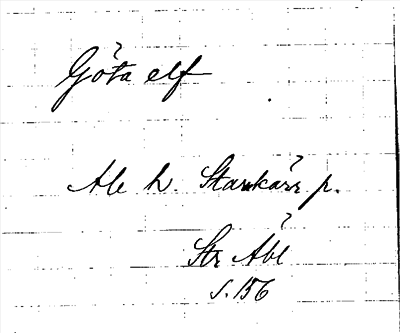 Göta elf
Ale h. Starrkärr p.
Str Åbl
s. 156